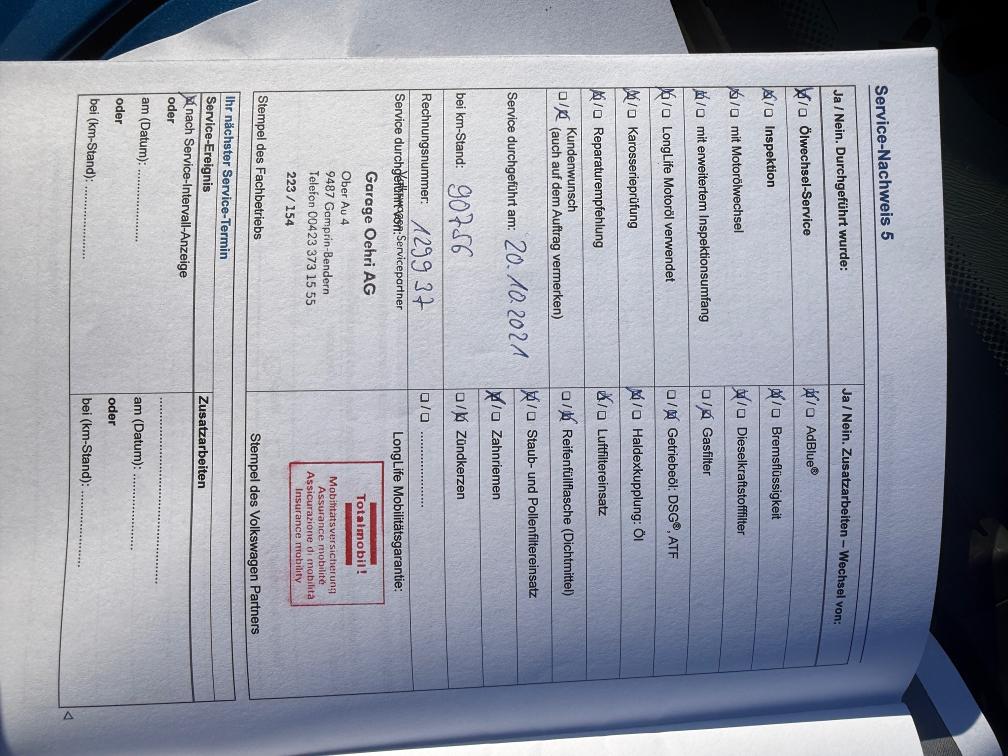 Service-Nachweis 5
Ja / Nein. Durchgeführt wurde:
☒/☐ Ölwechsel-Service
☒/☐ Inspektion
☒/☐ mit Motorölwechsel
☒/☐ mit erweitertem Inspektionsumfang
☒/☐ LongLife Motoröl verwendet
☒/☐ Karosserieprüfung
☒/☐ Reparaturempfehlung
☐/☒ Kundenwunsch
(auch auf dem Auftrag vermerken)
Service durchgeführt am: 20.10.2021
bei km-Stand: 90756
Rechnungsnummer: 129937
Service durchgeführt von:
Servicepartner
Garage Oehri AG
Ober Au 4
9487 Gamprin-Bendern
Telefon 00423 373 15 55
223 / 154
Stempel des Fachbetriebs
Ja / Nein. Zusatzarbeiten – Wechsel von:
☒/☐ AdBlue®
☒/☐ Bremsflüssigkeit
☒/☐ Dieselkraftstofffilter
☐/☒ Gasfilter
☐/☒ Getriebeöl: DSG®, ATF
☒/☐ Haldexkupplung: Öl
☒/☐ Luftfiltereinsatz
☐/☒ Reifenfüllflasche (Dichtmittel)
☒/☐ Staub- und Pollenfiltereinsatz
☒/☐ Zahnriemen
☐/☒ Zündkerzen
☐/☐ ....................
LongLife Mobilitätsgarantie:
Totalmobil!
Mobilitätsversicherung
Assurance mobilité
Assicurazione di mobilità
Insurance mobility
Stempel des Volkswagen Partners
Ihr nächster Service-Termin
Service-Ereignis
☒ nach Service-Intervall-Anzeige
oder
am (Datum): ....................
oder
bei (km-Stand): ....................
Zusatzarbeiten
........................................
am (Datum): ....................
oder
bei (km-Stand): ....................